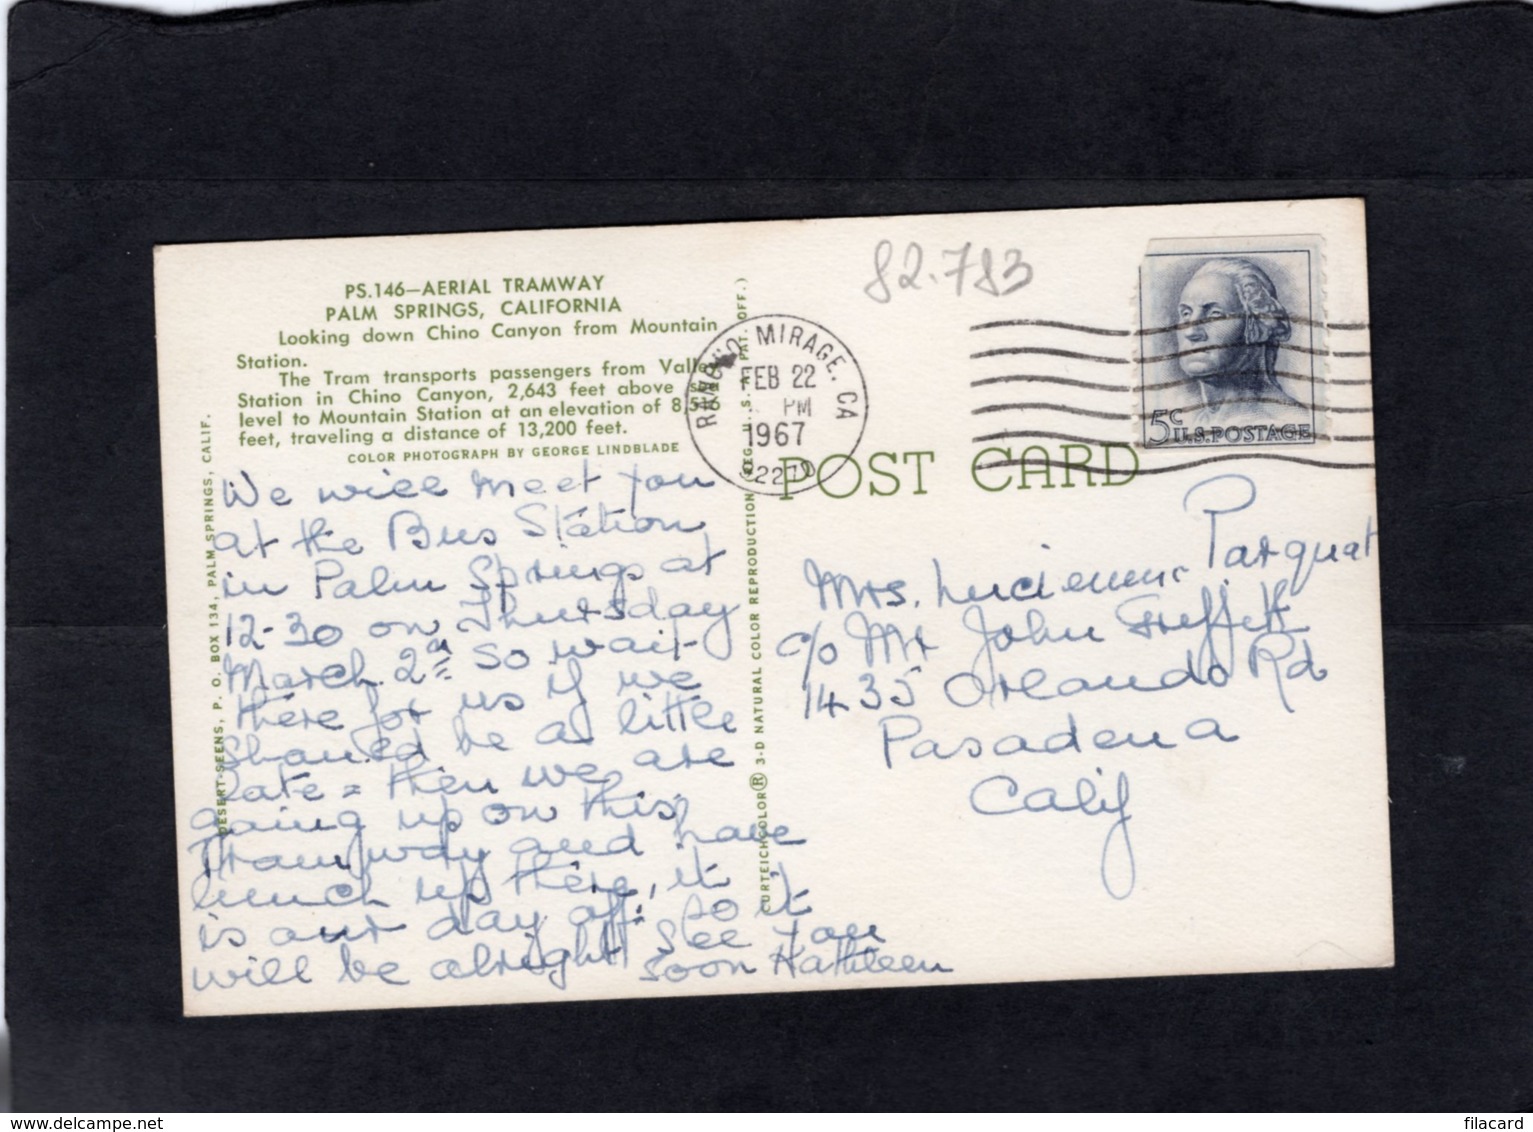 PS.146—AERIAL TRAMWAY
PALM SPRINGS, CALIFORNIA
Looking down Chino Canyon from Mountain
Station.
The Tram transports passengers from Valley
Station in Chino Canyon, 2,643 feet above sea
level to Mountain Station at an elevation of 8,51
feet, traveling a distance of 13,200 feet.
COLOR PHOTOGRAPH BY GEORGE LINDBLADE
DESERT-SEENS, P. O. BOX 134, PALM SPRINGS, CALIF.
We will meet you
at the Bus Station
in Palm Springs at
12-30 on Thursday
March 2nd so wait
there for us if we
should be a little
late = then we are
going up on this
Tramway and have
lunch up there, it
is our day off so it
will be alright see you
soon Kathleen
CURTEICHCOLOR® 3-D NATURAL COLOR REPRODUCTION (REG. U. S. A. PAT. OFF.)
82.783
RANCHO MIRAGE, CA
FEB 22
PM
1967
92270
5c
U.S. POSTAGE
POST CARD
Mrs. Lucienne Parquat
c/o Mr John Griffith
1435 Orlando Rd
Pasadena
Calif
filacard